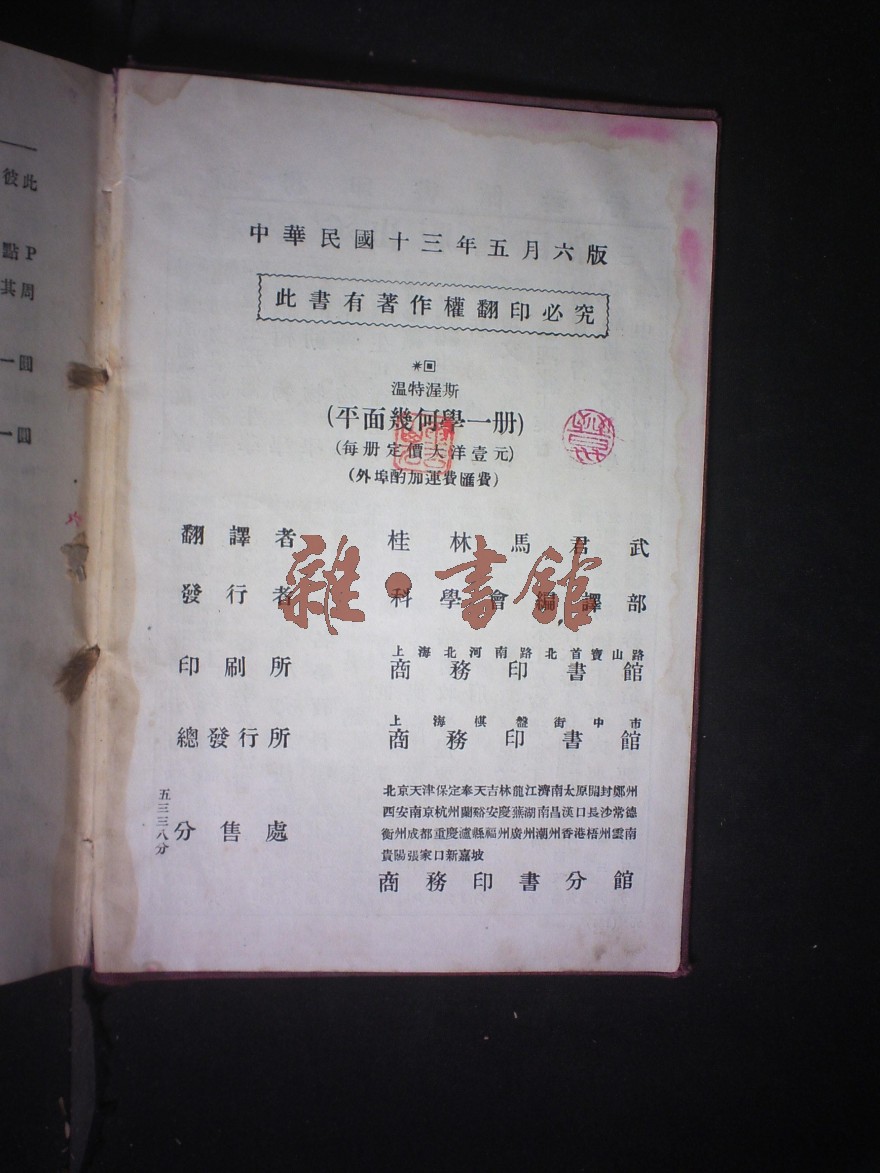 此彼
點P
其周
一圓
一圓
中華民國十三年五月六版
此書有著作權翻印必究
溫特渥斯
(平面幾何學一册)
(每册定價大洋壹元)
(外埠酌加運費匯費)
翻譯者 桂林馬君武
發行者 科學會編譯部
印刷所 上海北河南路北首寶山路
商務印書館
總發行所 上海棋盤街中市
商務印書館
分售處 北京天津保定奉天吉林龍江濟南太原開封鄭州
西安南京杭州蘭谿安慶蕪湖南昌漢口長沙常德
衡州成都重慶瀘縣福州廣州潮州香港梧州雲南
貴陽張家口新嘉坡
商務印書分館
五三三八分
雜·書館